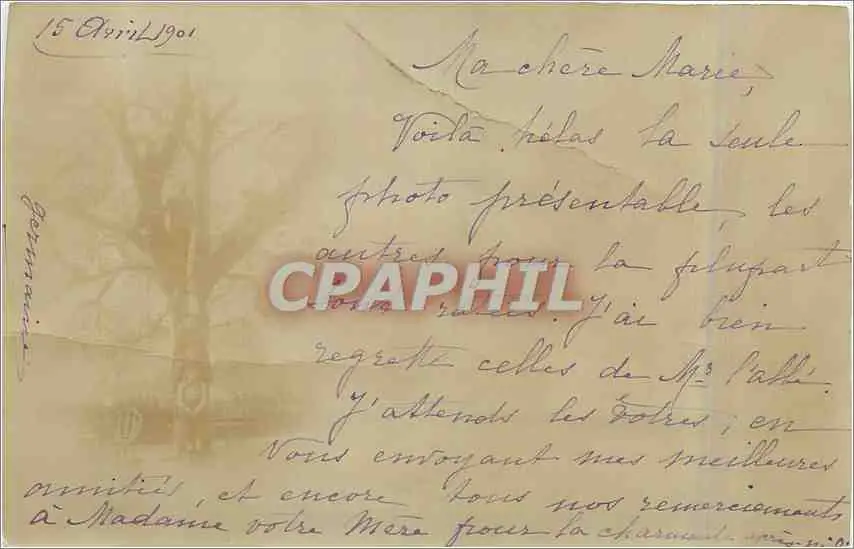 15 Avril 1901
Ma chère Marie,
Voilà hélas la seule
photo présentable, les
autres pour la plupart
sont ratées. J'ai bien
regretté celles de Mr l'abbé.
J'attends les vôtres, en
vous envoyant mes meilleures
amitiés, et encore tous nos remerciements
à Madame votre Mère pour la charmante
Germaine
CPAPHIL